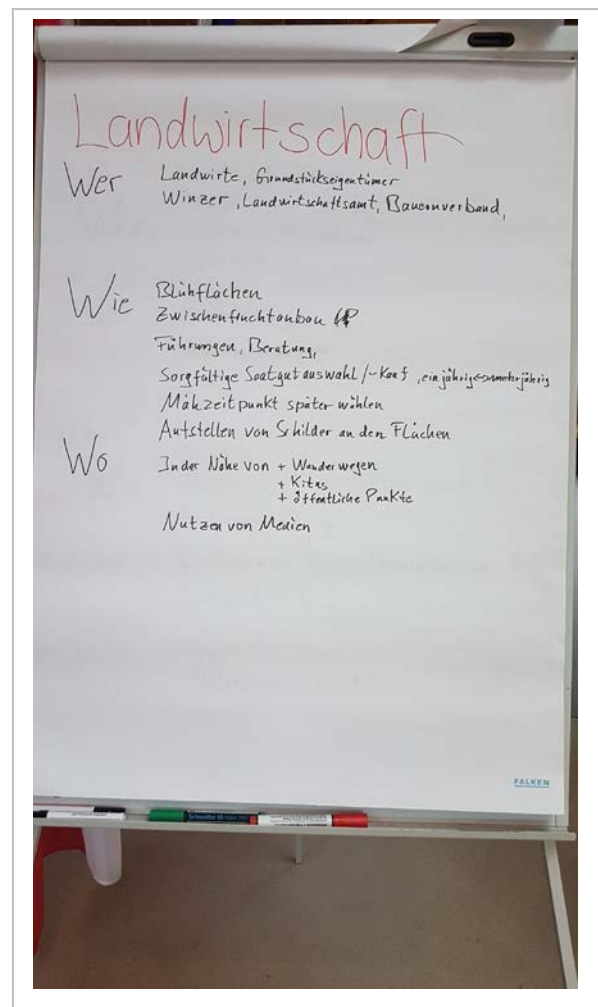 Landwirtschaft
Wer Landwirte, Grundstückseigentümer
Winzer, Landwirtschaftsamt, Bauernverband,
Wie Blühflächen
Zwischenfruchtanbau
Führungen, Beratung,
Sorgfältige Saatgutauswahl /-Kauf, einjährig↔mehrjährig
Mähzeitpunkt später wählen
Aufstellen von Schilder an den Flächen
Wo In der Nähe von + Wanderwegen
+ Kitas
+ öffentliche Punkte
Nutzen von Medien
FALKEN
Schneider